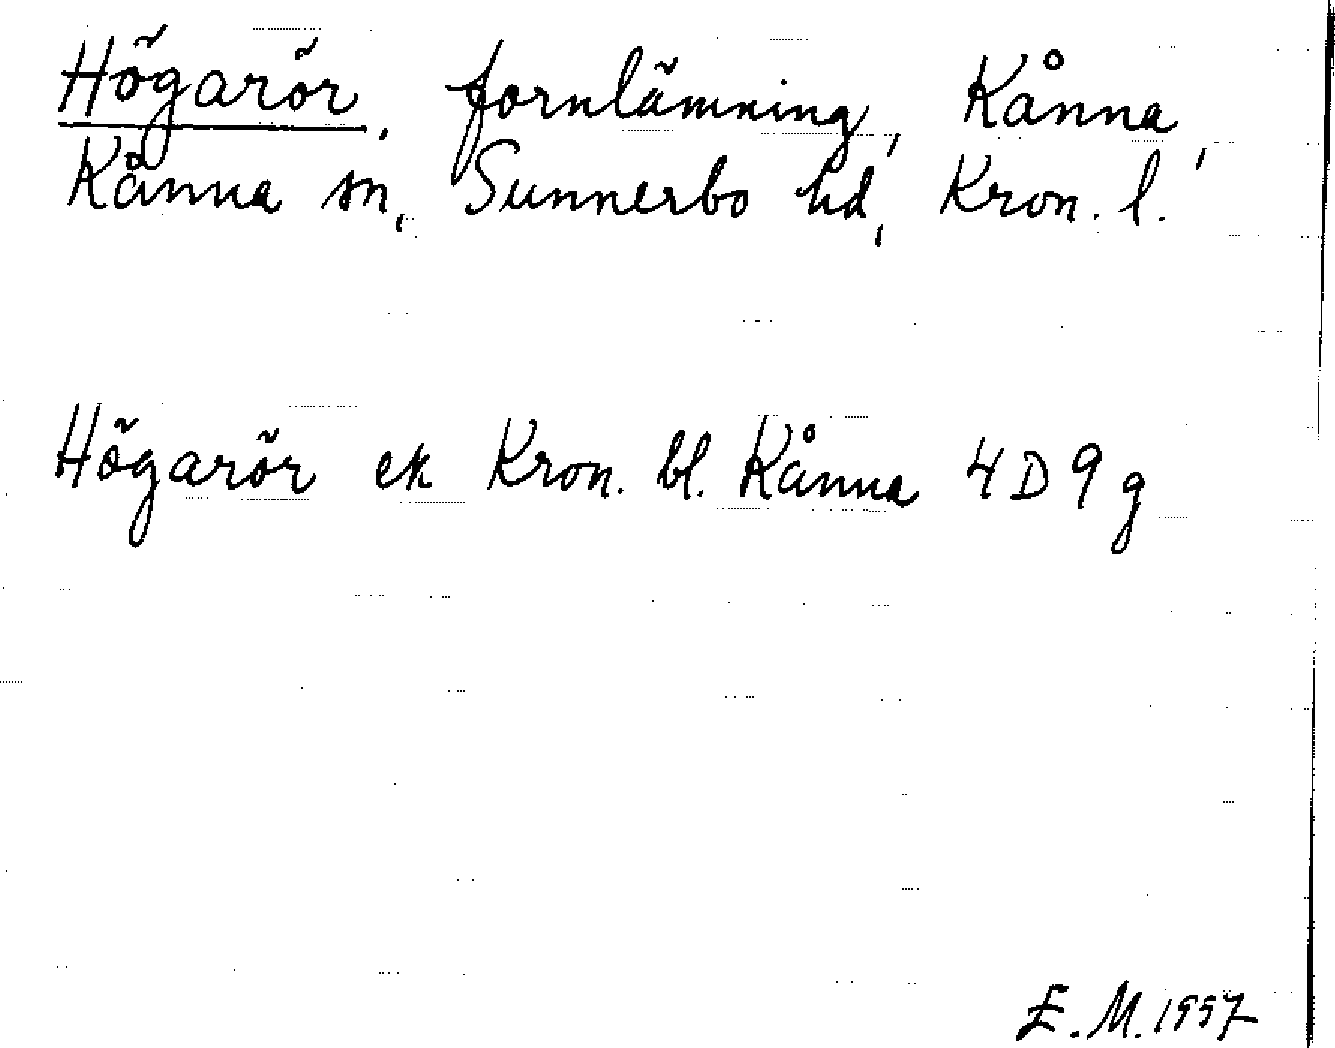 Högarör, fornlämning, Kånna,
Kånna sn, Sunnerbo hd, Kron. l.
Högarör ek Kron. bl. Kånna 4D9g
E.M. 1957